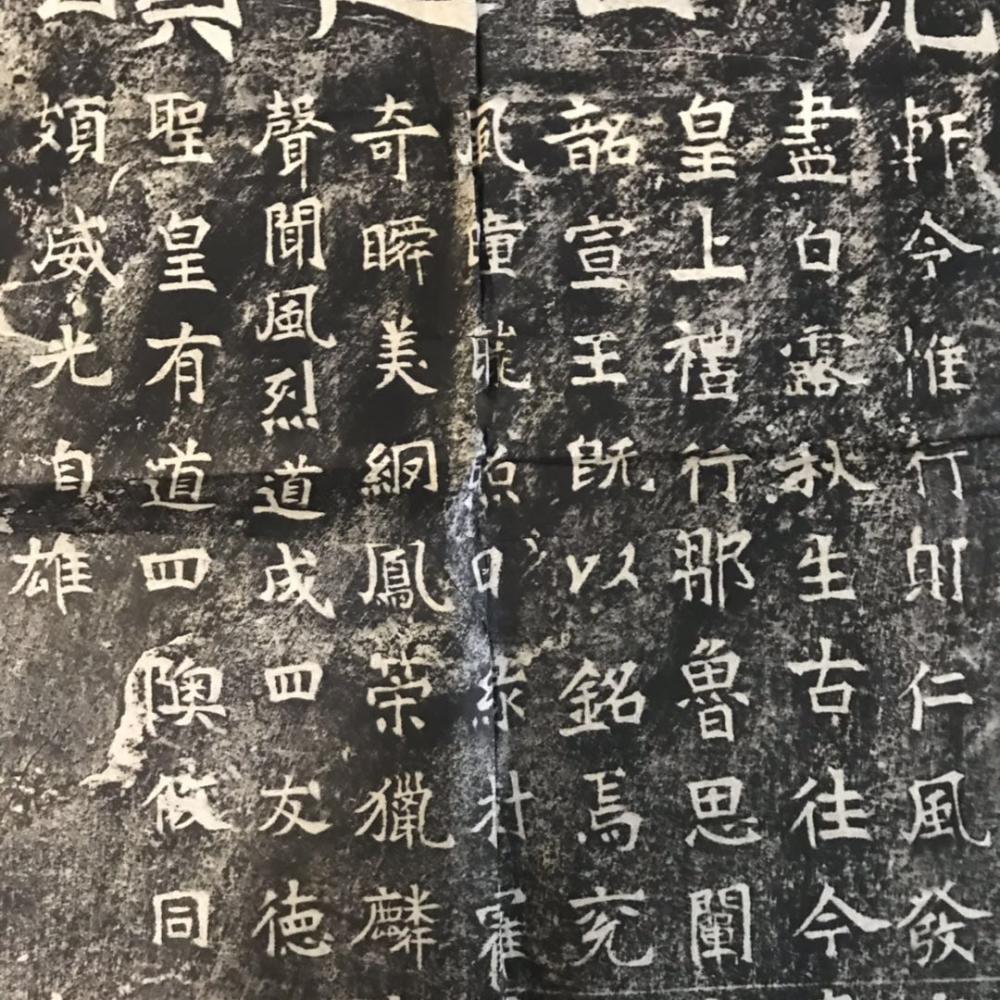 斬令淮行則仁風發
盡白露秋生古往今
皇上禮行那魯思闡
韶宣王既以銘焉兖
風瞳能照日綵村寉
奇瞬美絅鳳荣獵麟
聲聞風烈道成四友德
聖皇有道四隩攸同
頍威光自雄